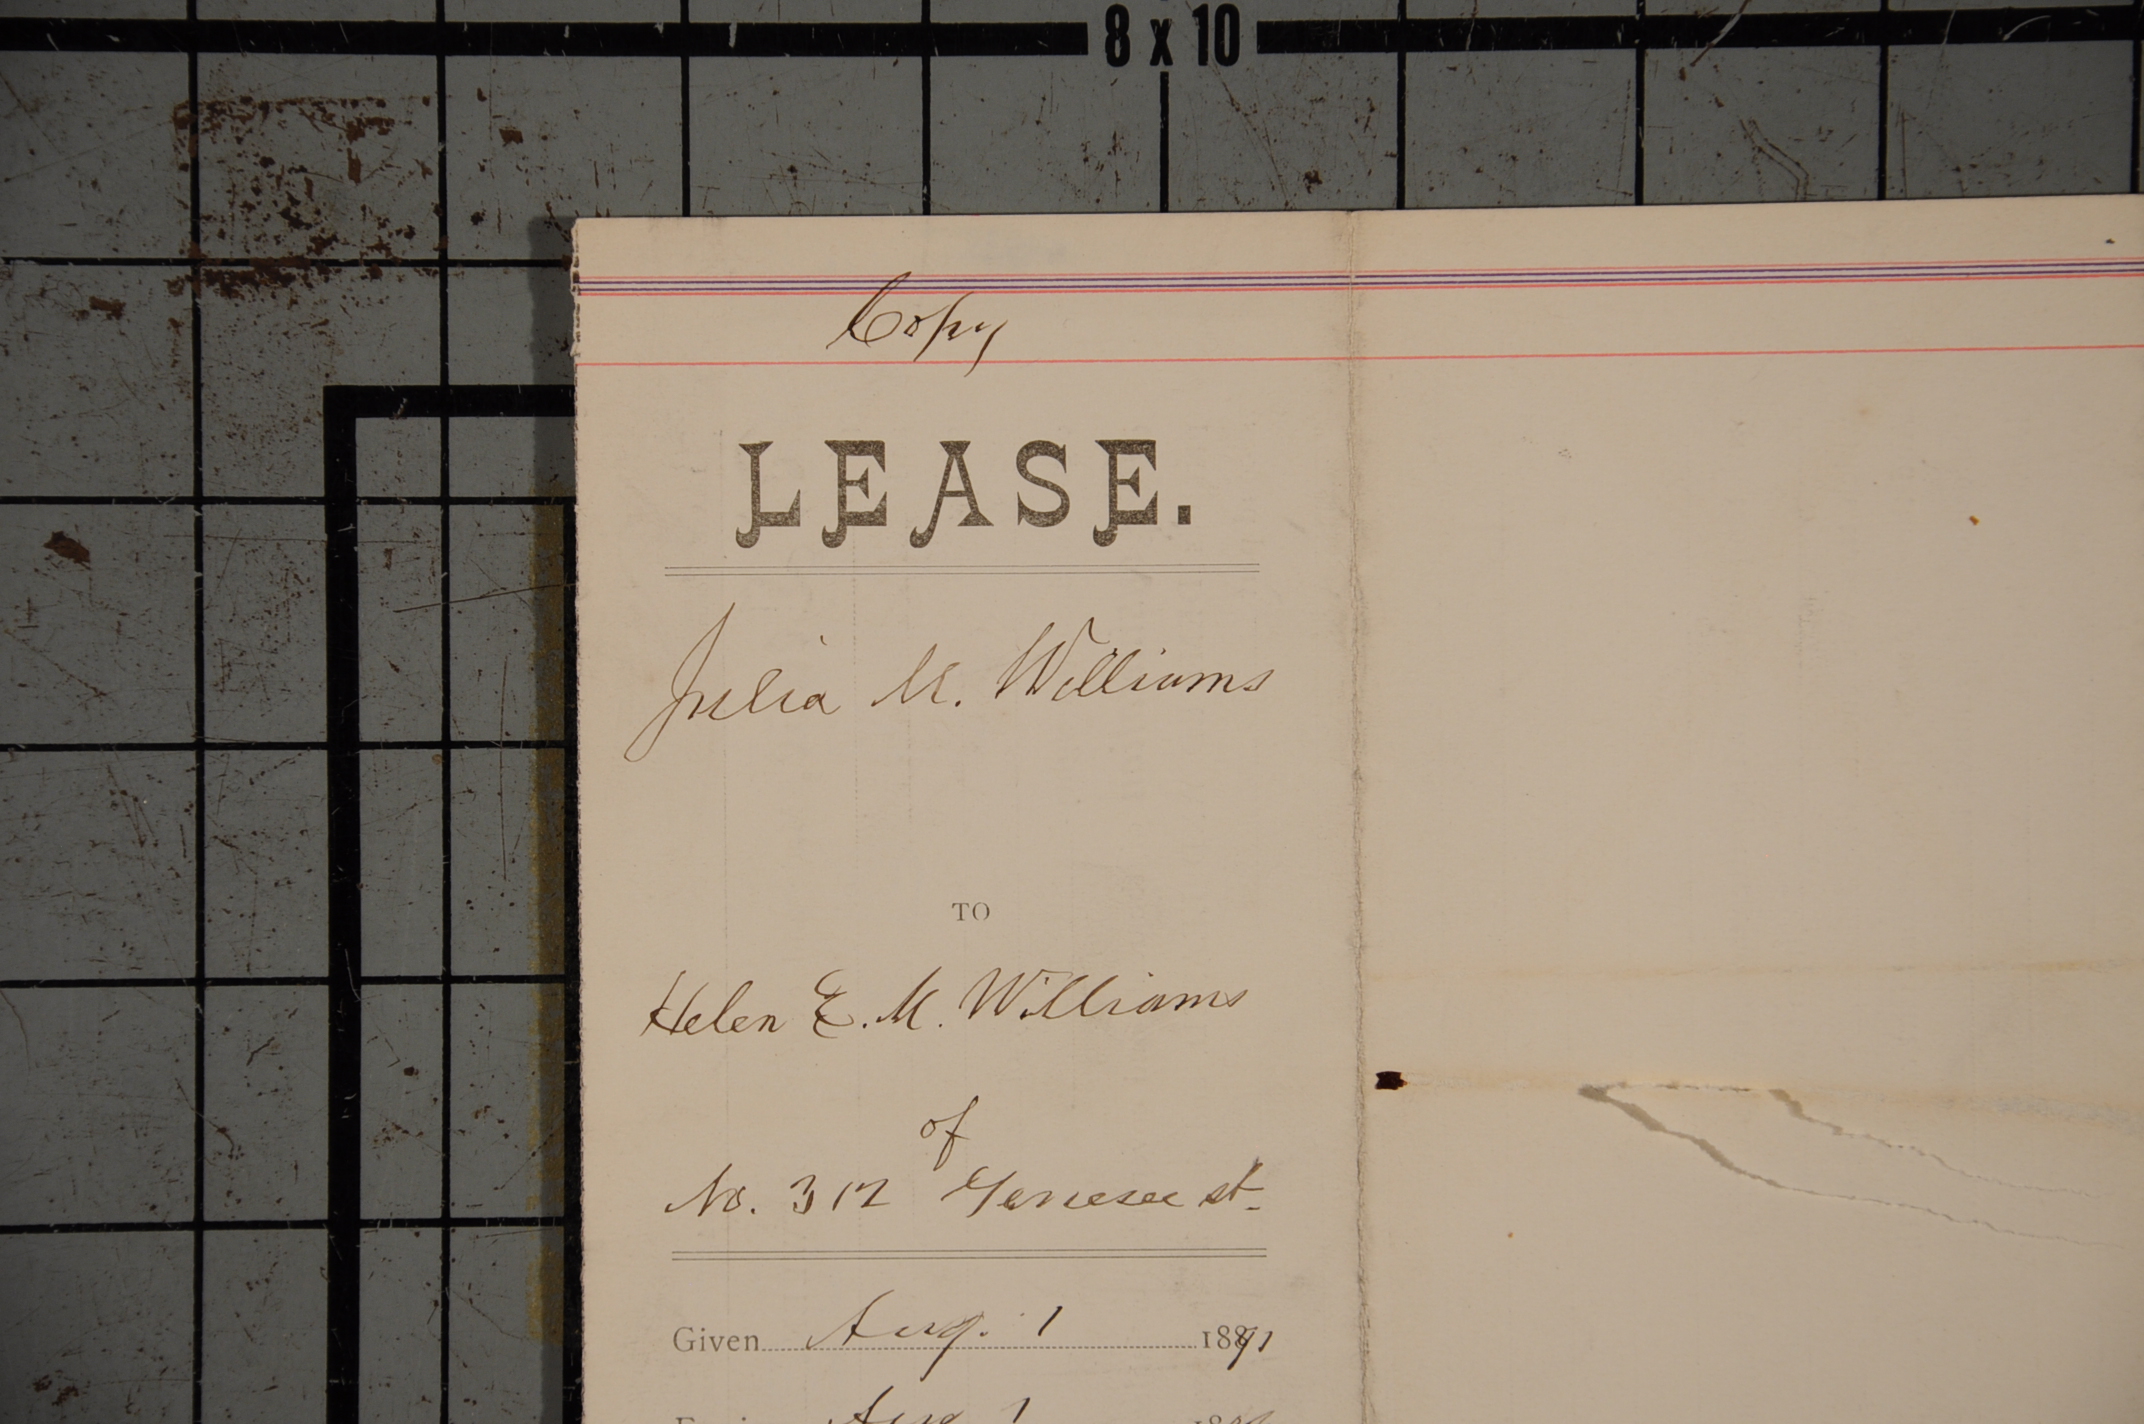 8 x 10
Copy
LEASE.
Julia M. Williams
TO
Helen E. M. Williams
of
No. 312 Genesee st.
Given Aug. 1 1891
Aug. 1